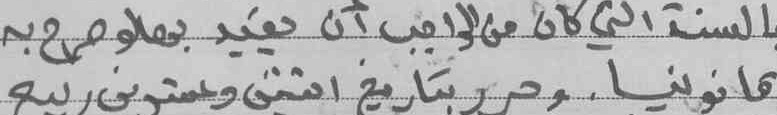 بالسنة التي كان من الواجب أن يعتد بها وصرح به
قانونيا. وحرر بتاريخ اثنين وعشرين ربيع